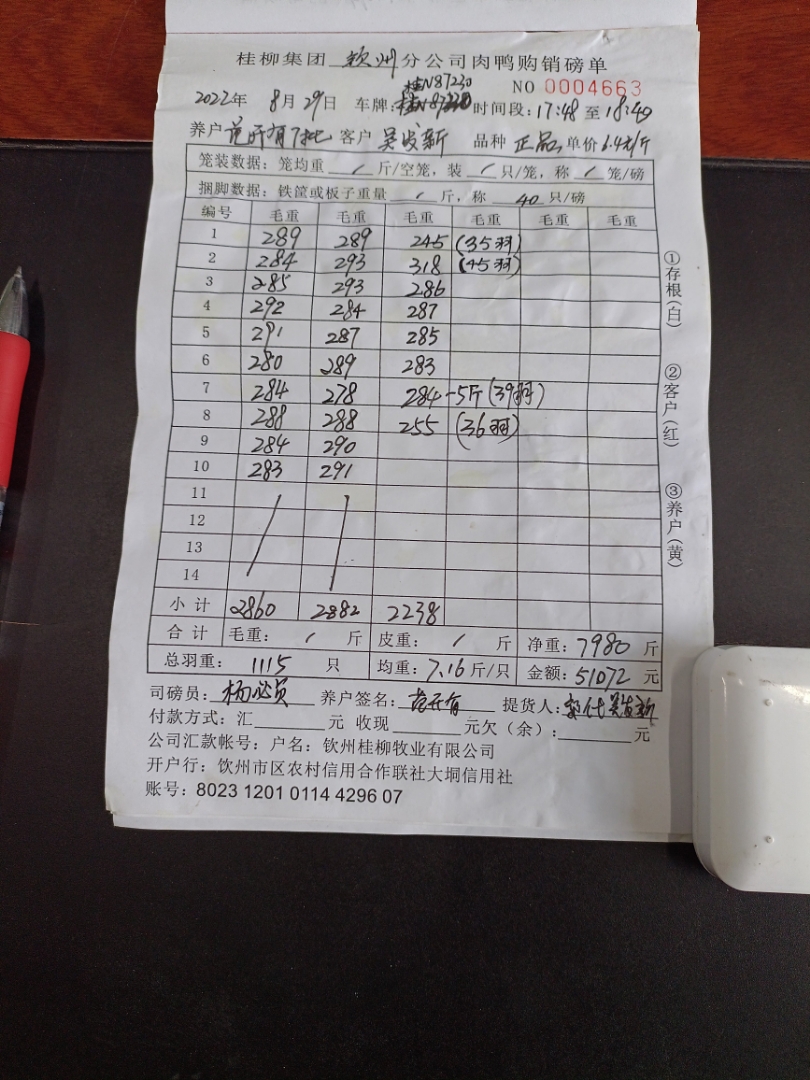 桂柳集团 钦州 分公司肉鸭购销磅单
NO 0004663
桂N87230
2022年 8月29日 车牌: 时间段:17:48至18:40
养户 范开有7批 客户 吴发新 品种 正品 单价6.4元/斤
笼装数据:笼均重 / 斤/空笼,装 / 只/笼,称 / 笼/磅
捆脚数据:铁筐或板子重量 / 斤,称 40 只/磅
编号 毛重 毛重 毛重 毛重 毛重 毛重
1 289 289 245 (35羽)
2 284 293 318 (45羽)
3 285 293 286
4 292 284 287
5 291 287 285
6 280 289 283
7 284 278 284 -5斤(39羽)
8 288 288 255 (36羽)
9 284 290
10 283 291
11
12
13
14
小计 2860 2882 2238
合计 毛重: / 斤 皮重: / 斤 净重:7980 斤
总羽重: 1115 只 均重:7.16斤/只 金额:51072 元
司磅员: 养户签名:范开有 提货人:吴发新
付款方式:汇______元 收现______元欠(余):______元
公司汇款帐号:户名:钦州桂柳牧业有限公司
开户行:钦州市区农村信用合作联社大垌信用社
账号:8023 1201 0114 4296 07
①存根(白)
②客户(红)
③养户(黄)